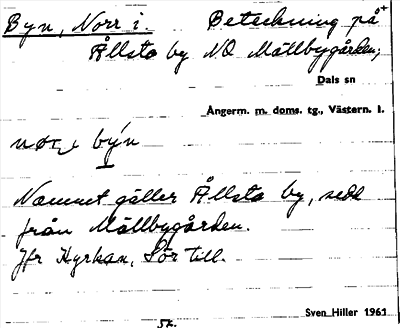 Byn, Norr i. Beteckning på+
Ållsta by NO Mällbygården;
Dals sn
Ångerm. m. doms. tg., Västern. l.
býn
Namnet gäller Ållsta by, sedd
från Mällbygården.
Jfr Kyrkan, Sör till.
Sven Hiller 1961